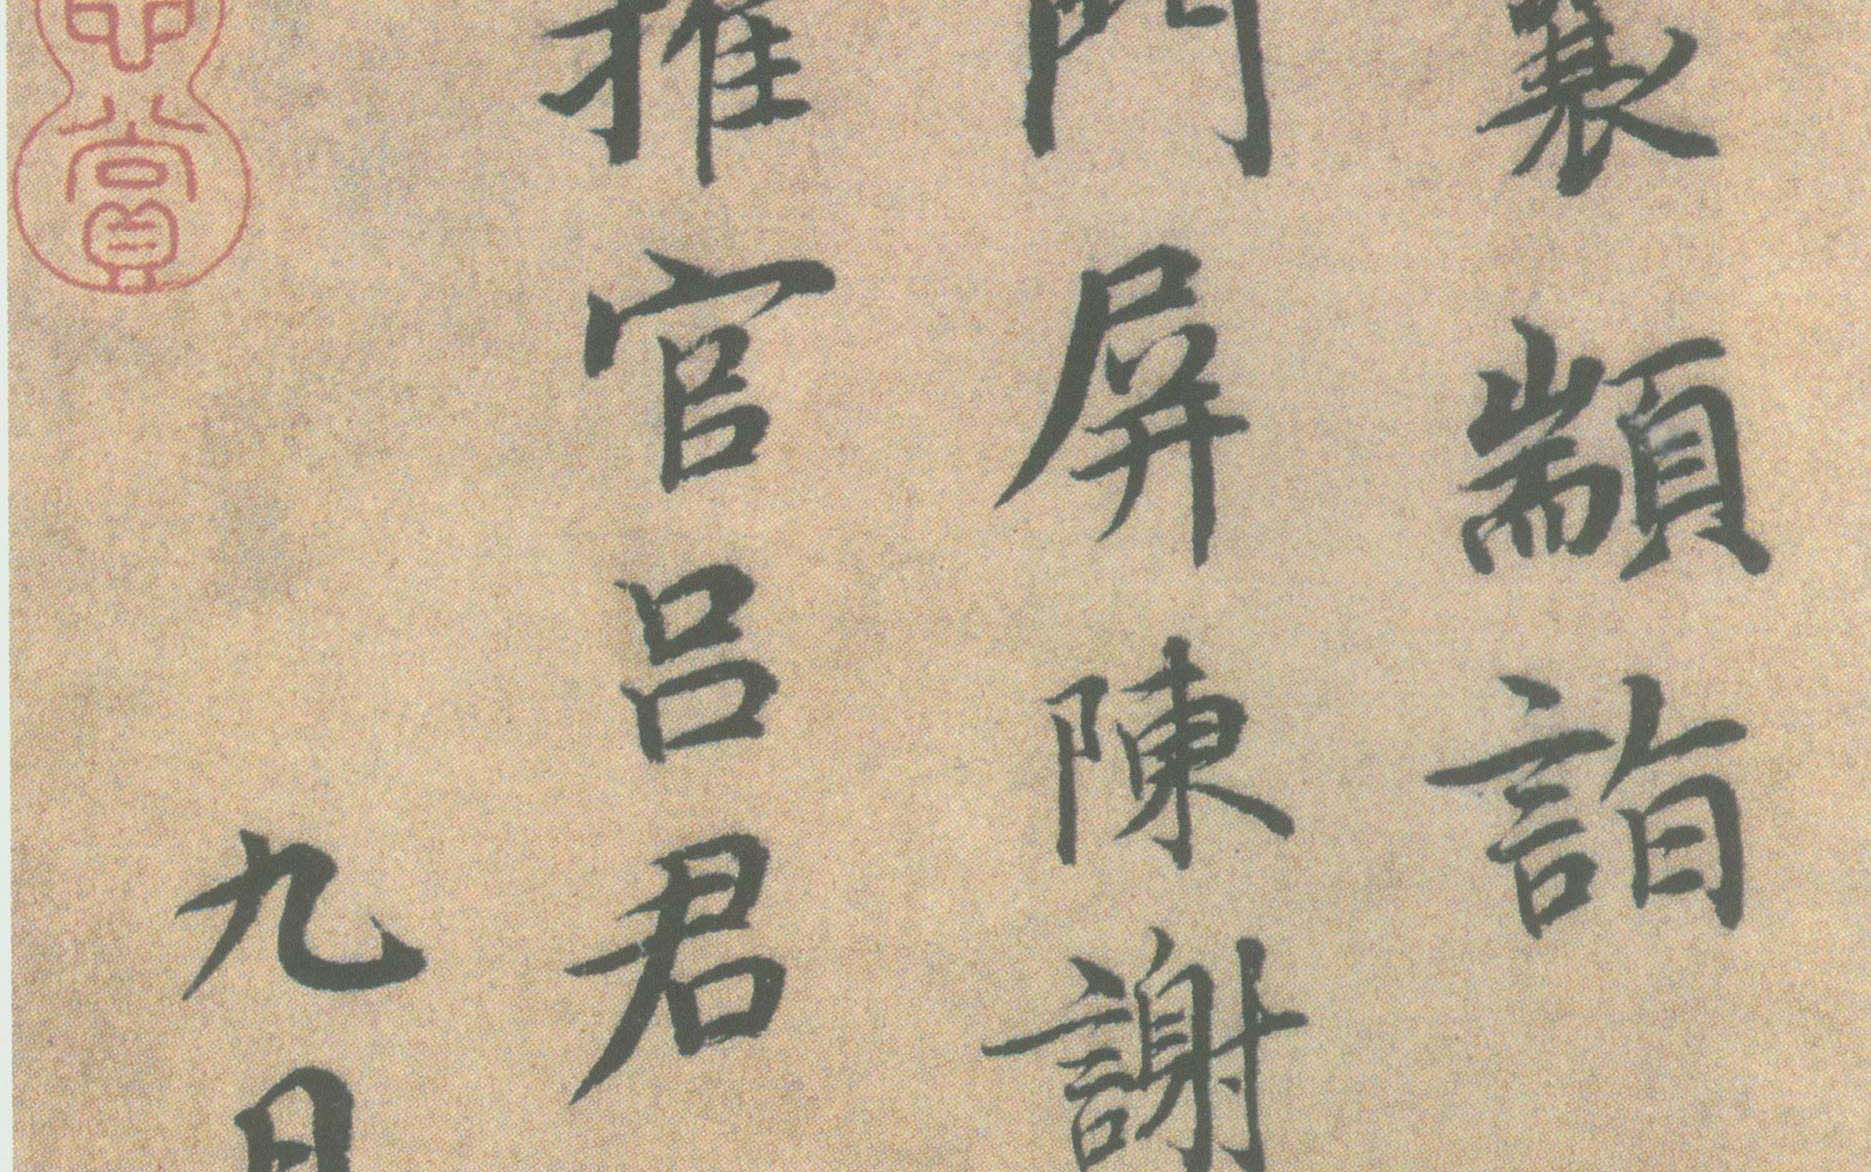 襄顓詣
門屏陳謝
推官呂君
九月